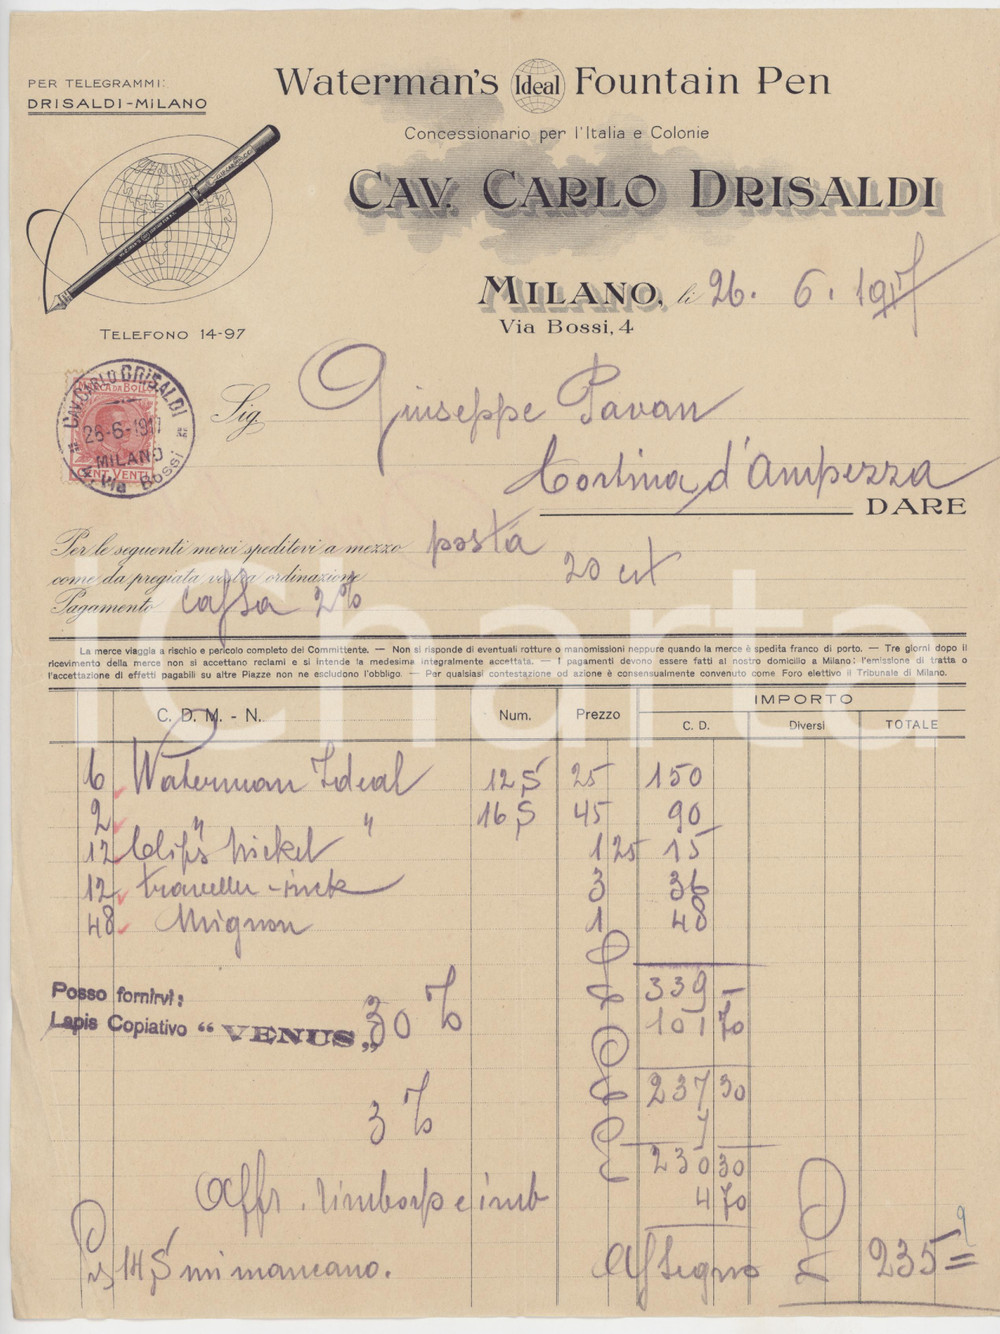 PER TELEGRAMMI:
DRISALDI-MILANO
Waterman's Ideal Fountain Pen
Concessionario per l'Italia e Colonie
CAV. CARLO DRISALDI
MILANO, li 26. 6. 1917
Via Bossi, 4
TELEFONO 14-97
MARCA DA BOLLO
CENT. VENTI
CAV. CARLO DRISALDI
26-6-1917
MILANO
4, Via Bossi
Sig. Giuseppe Pavan
Cortina d'Ampezza
DARE
Per le seguenti merci speditevi a mezzo posta
come da pregiata vostra ordinazione 20 crt
Pagamento cassa 2%
La merce viaggia a rischio e pericolo completo del Committente. — Non si risponde di eventuali rotture o manomissioni neppure quando la merce è spedita franco di porto. — Tre giorni dopo il
ricevimento della merce non si accettano reclami e si intende la medesima integralmente accettata. — I pagamenti devono essere fatti al nostro domicilio a Milano; l'emissione di tratta o
l'accettazione di effetti pagabili su altre Piazze non ne escludono l'obbligo. — Per qualsiasi contestazione od azione è consensualmente convenuto come Foro elettivo il Tribunale di Milano.
C. D. M. - N. Num. Prezzo IMPORTO
C. D. Diversi TOTALE
6 Waterman Ideal 12 S 25 150
2 " " 16 S 45 90
12 Clips nickel 1 25 15
12 traveller-inck 3 36
48 Mignon 1 48
£ 339 -
Posso fornirvi:
Lapis Copiativo "VENUS„
30 % £ 101 70
£ 237 30
3 % 7
£ 230 30
Affr. rimborso e imb 4 70
14 S mi mancano. Assegno £ 235 =
9
iCharta